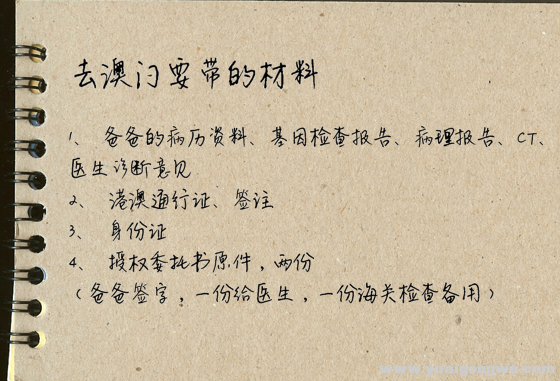 去澳门要带的材料
1、爸爸的病历资料、基因检查报告、病理报告、CT、
医生诊断意见
2、港澳通行证、签注
3、身份证
4、授权委托书原件，两份
（爸爸签字，一份给医生，一份海关检查备用）